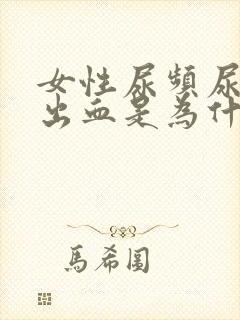 女性尿頻尿
出血是為什
馬希圖